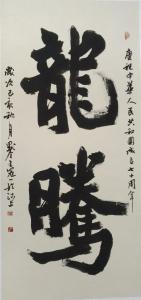 慶祝中華人民共和國成立七十周年
龍騰
歲次己亥秋月